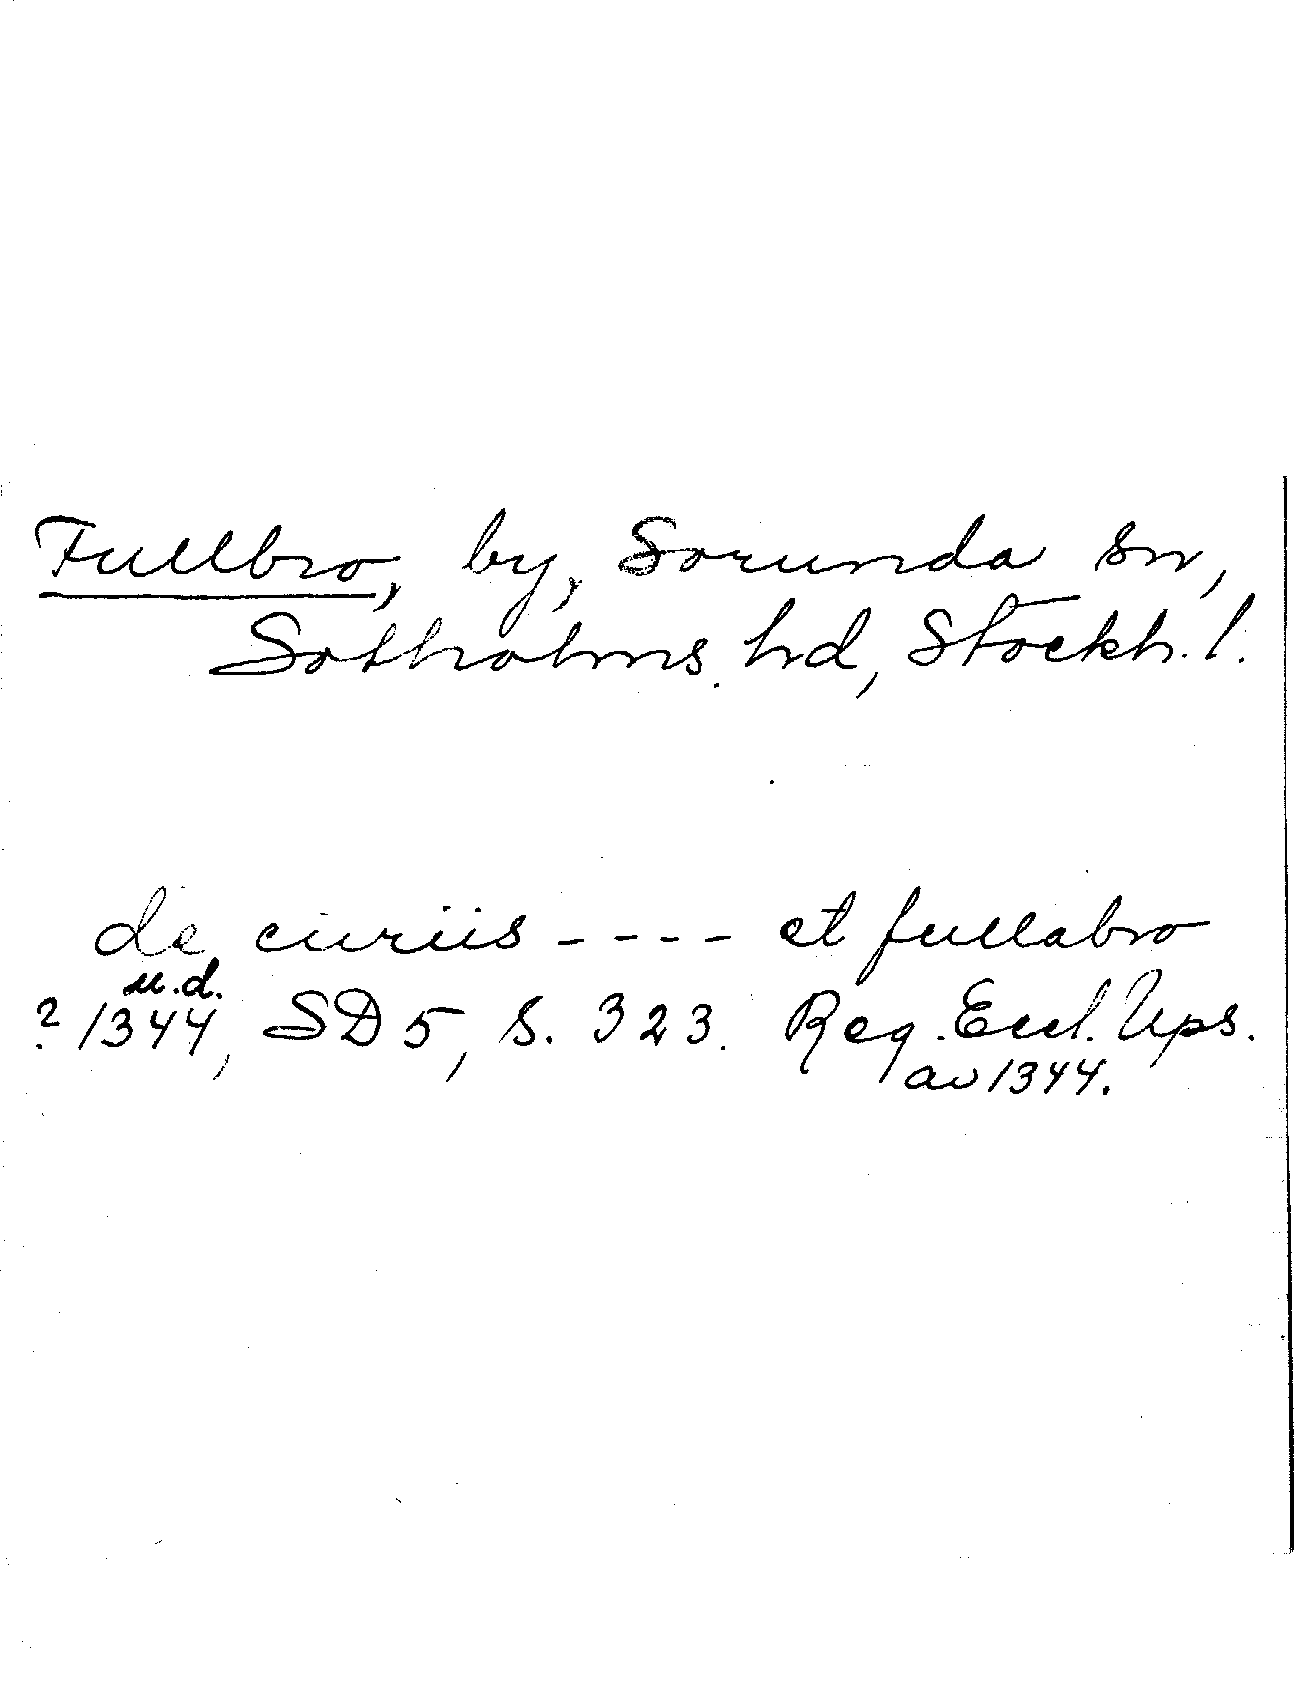 Fullbro, by, Sorunda sn,
Sotholms hd, Stockh. l.
de curiis - - - - et fullabro
u.d.
? 1344, SD 5, s. 323. Reg. Eccl. Ups.
av 1344.